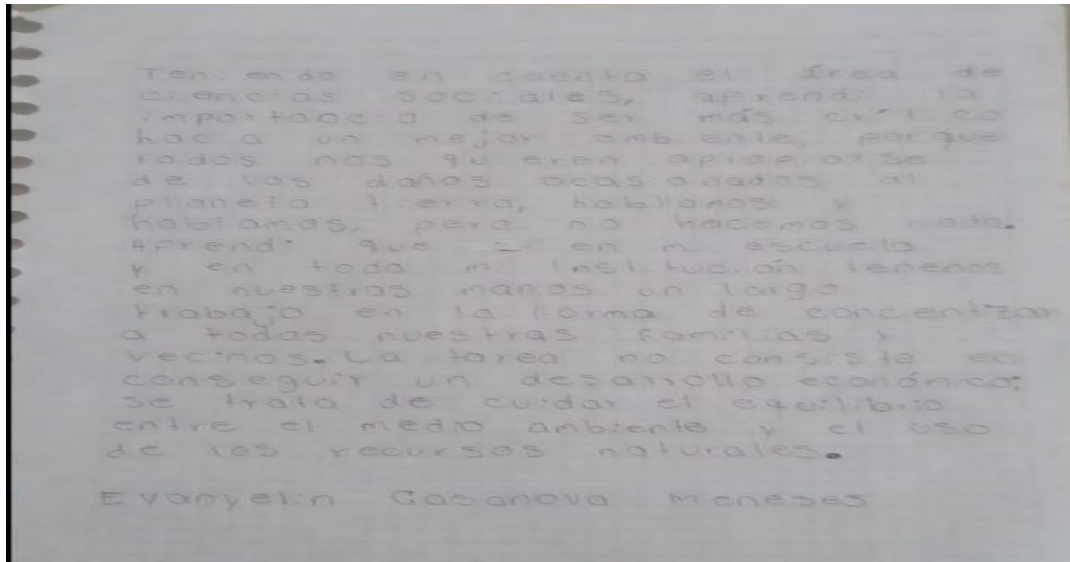 Teniendo en cuenta el área de
ciencias sociales, aprendí la
importancia de ser más critico
hacia un mejor ambiente, porque
todos nos quieren apropiarse
de los daños ocasionados al
planeta tierra, hablamos y
hablamos, pero no hacemos nada.
Aprendí que en mi escuela
y en toda mi institución tenemos
en nuestras manos un largo
trabajo en la norma de concientizar
a todas nuestras familias y
vecinos. La tarea no consiste en
conseguir un desarrollo económico;
se trata de cuidar el equilibrio
entre el medio ambiente y el uso
de los recursos naturales.
Evanyelin Casanova Meneses